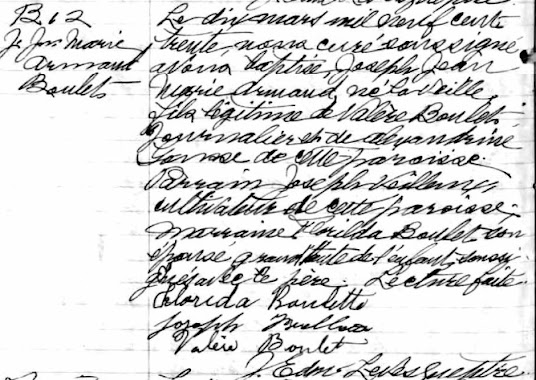 B 62
J. Jos. Marie
Armand
Boulet
Le dix mars mil neuf cent
trente, nous curé soussigné
avons baptisé, Joseph, Jean
Marie Armand, né la veille,
fils légitime de Valère Boulet,
journalier et de Alexandrine
de cette paroisse.
Parrain Joseph
cultivateur de cette paroisse.
Marraine Florilda Boulet son
épouse, grand'tante de l'enfant, soussi-
gnés avec le père. Lecture faite.
Florida Boulette
Joseph
Valère Boulet
J. Edm. Levesque ptre